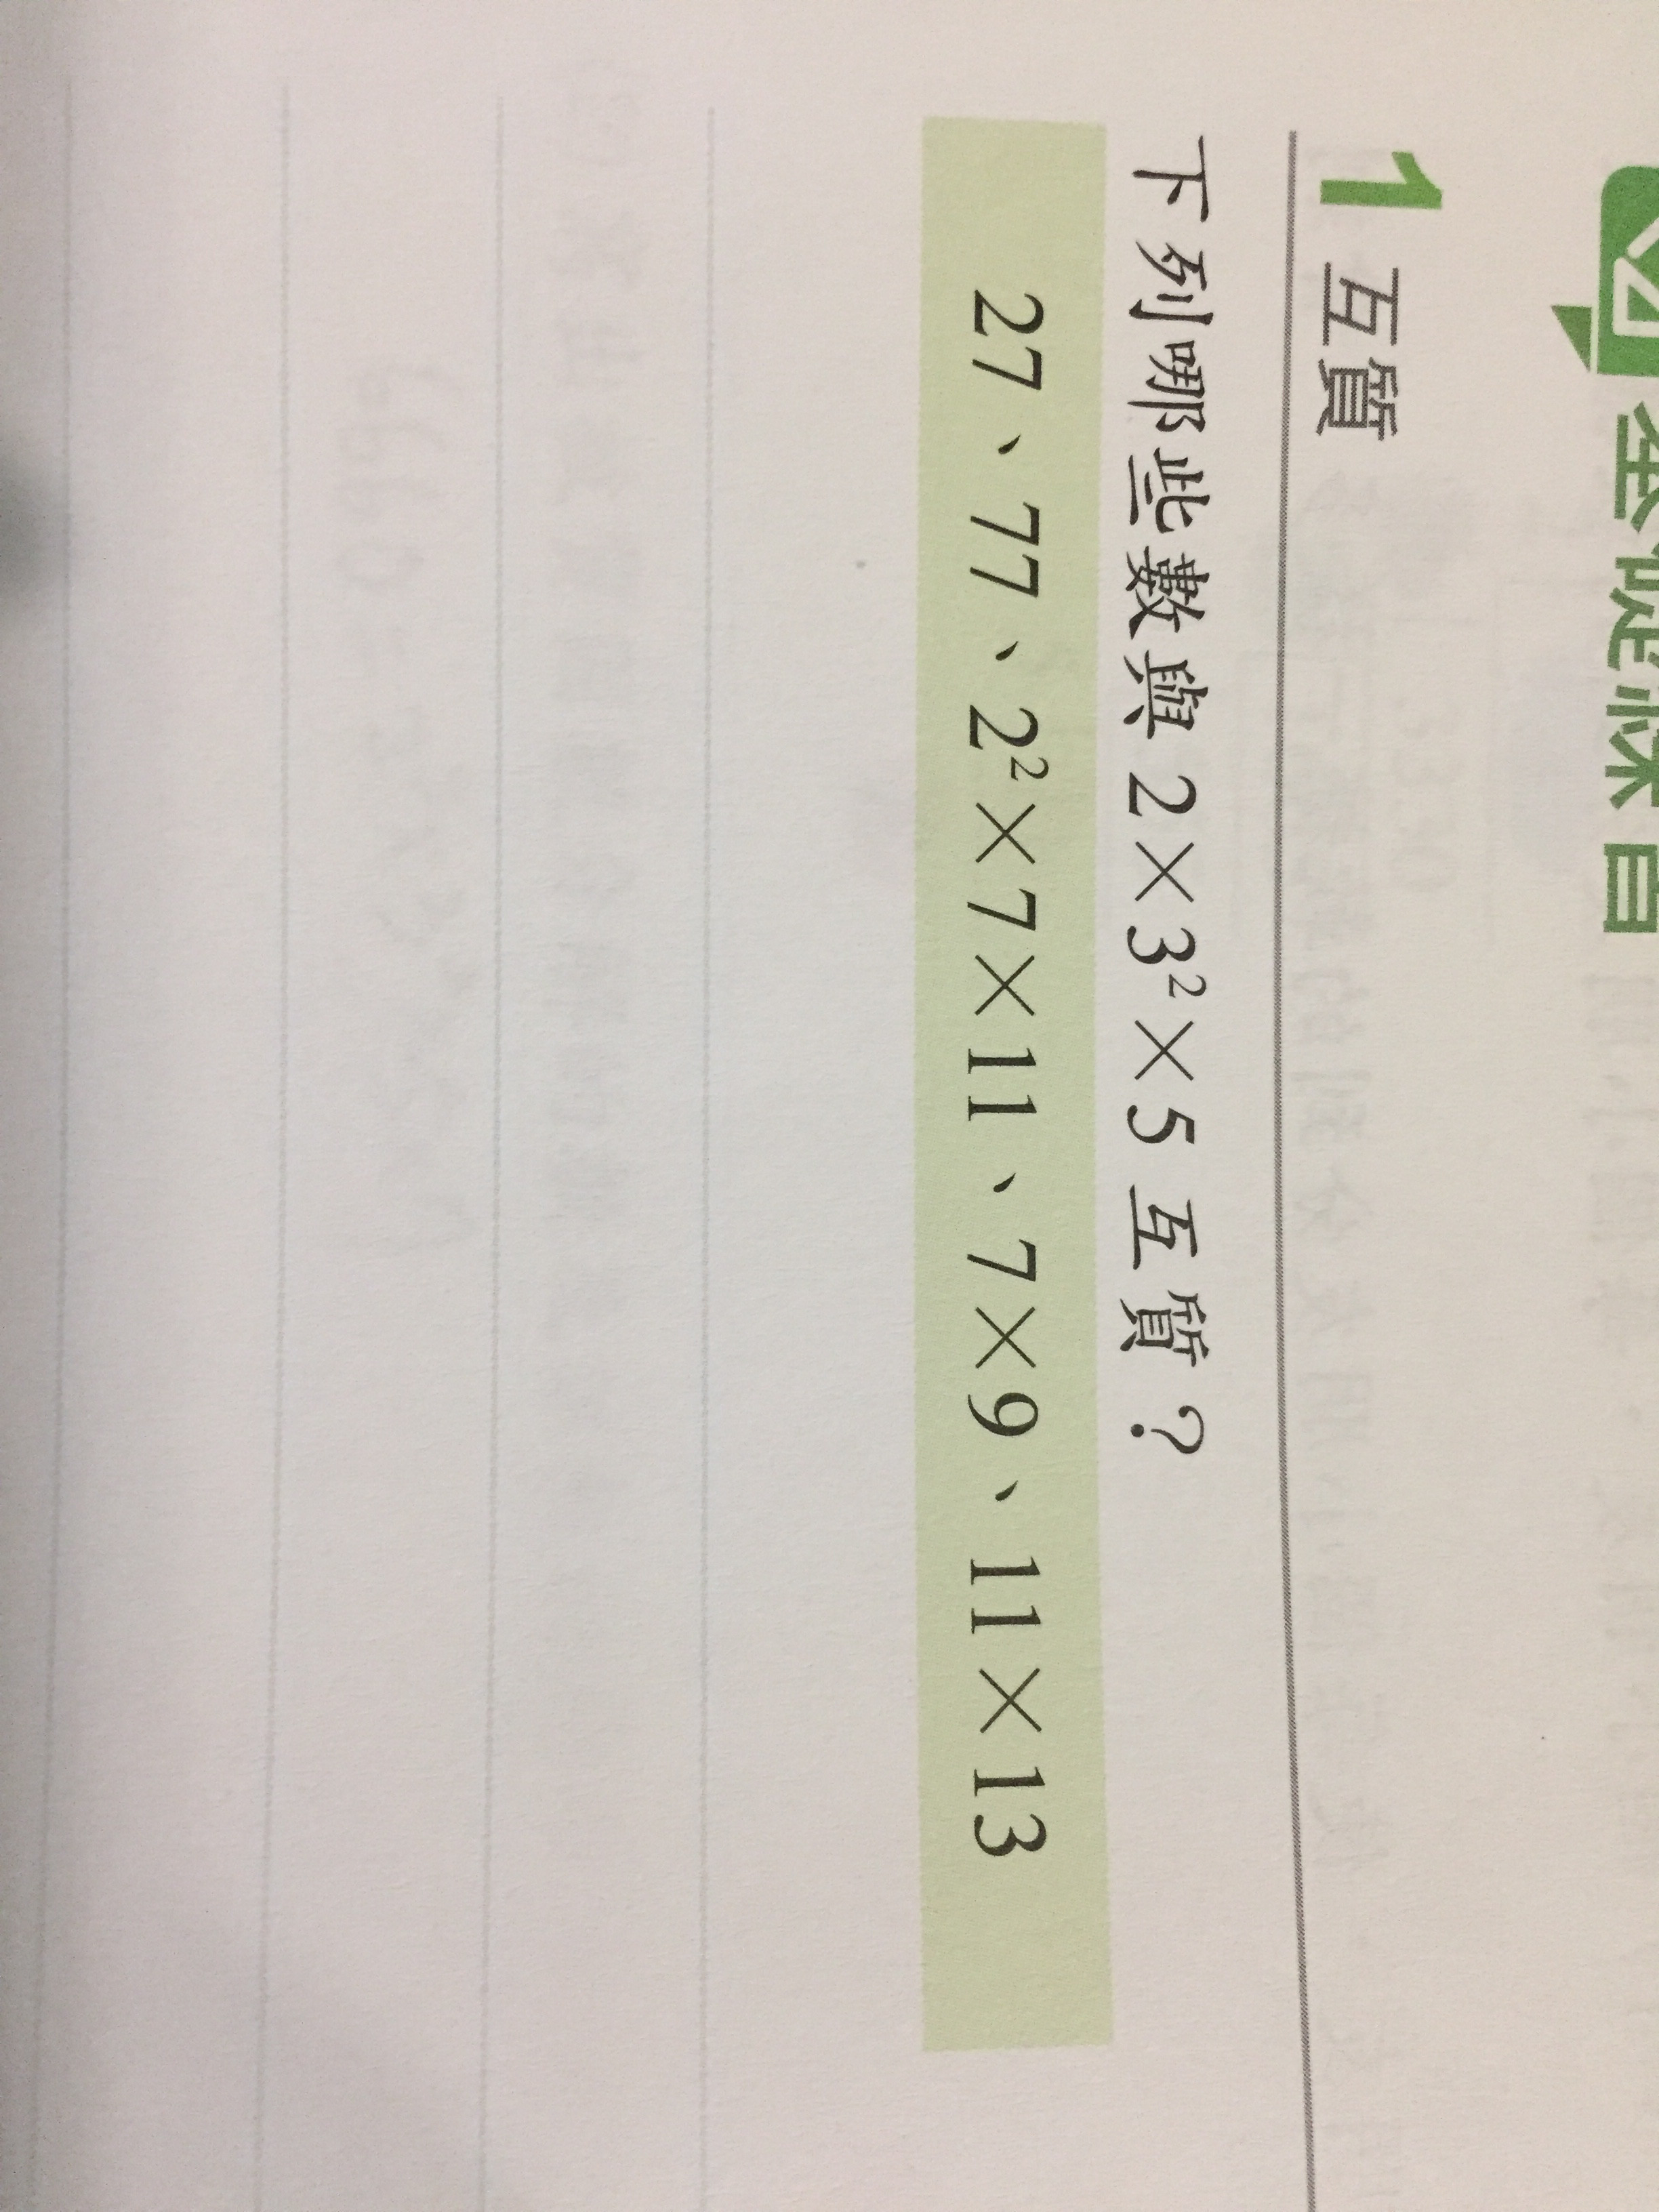 1 互質
下列哪些數與 2×3²×5 互質？
27、77、2²×7×11、7×9、11×13